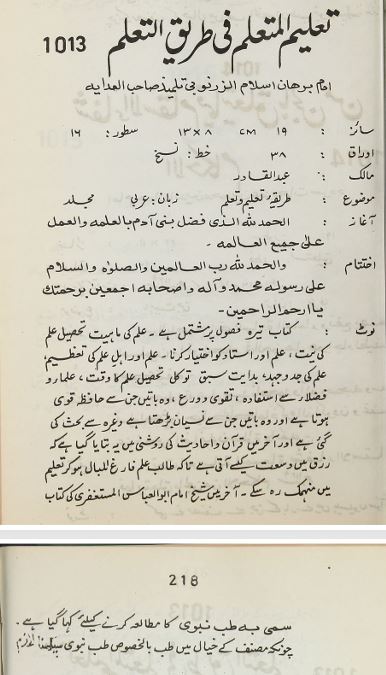 تعلیم المتعلم فی طریق التعلم 1013
امام برهان اسلام الزرنوبی تلمیذ صاحب الهدایه
سائز : ۱۹ cm ۸ × ۱۳ سطور: ۱۶
اوراق : ۳۸ خط: نسخ
مالک : عبدالقادر
موضوع : طریقۂ تعلیم و تعلم زبان: عربی مجلد
آغاز : الحمد للہ الذی فضل بنی آدم بالعلم والعمل
علی جمیع العالم ۔
اختتام : والحمد للہ رب العالمین والصلوٰہ والسلام
علی رسولہ محمد و آلہ واصحابہ اجمعین برحمتک
یا ارحم الراحمین۔
نوٹ : کتاب تیرہ فصول پر مشتمل ہے ۔ علم کی ماہیت تحصیل علم
کی نیت ، علم اور استاد کو اختیار کرنا ۔ علم اور اہل علم کی تعظیم،
علم کی جدوجہد، بدایت سبق توکل تحصیل علم کا وقت ، علما و
فضلا سے استفادہ ، تقوی و ورع ، وہ باتیں جن سے حافظہ قوی
ہوتا ہے اور وہ باتیں جن سے نسیان بڑھتا ہے وغیرہ سے بحث کی
گئی ہے اور آخر میں قرآن و احادیث کی روشنی میں یہ بتایا گیا ہے کہ
رزق میں وسعت کیسے آتی ہے تاکہ طالب علم فارغ البال ہو کر تعلیم
میں منہمک رہ سکے ۔ آخر میں شیخ امام ابو العباس المستغفری کی کتاب
218
سمی بہ طب نبوی کا مطالعہ کرنے کیلئے کہا گیا ہے ۔
چونکہ مصنف کے خیال میں طب بالخصوص طب نبوی